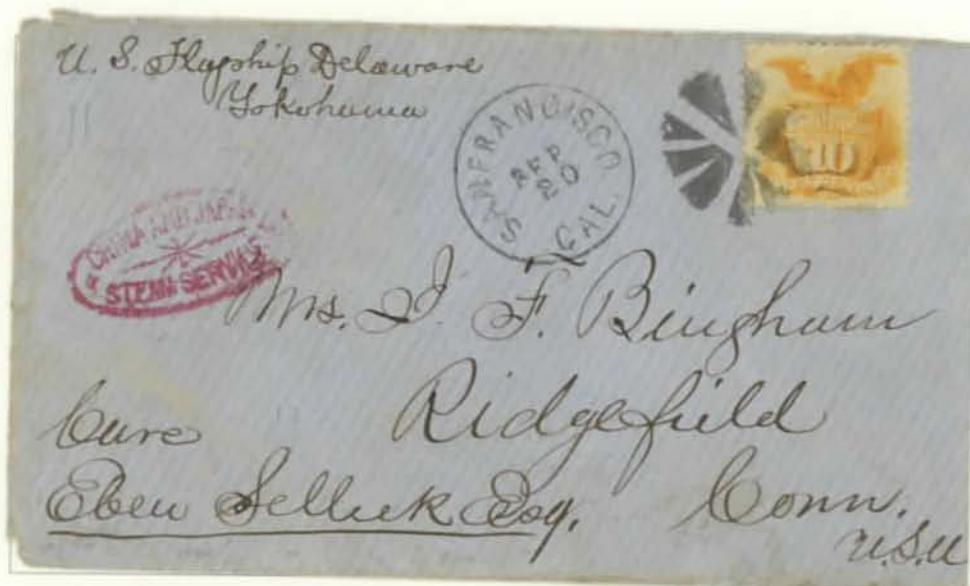 U. S. Flagship Delaware
Yokohama
SAN FRANCISCO CAL.
SEP
CHINA AND JAPAN
STEAM SERVICE
10
Mrs. J. F. Bingham
Ridgefield
Care
Eben Selleck Esq.
Conn.
U.S.A